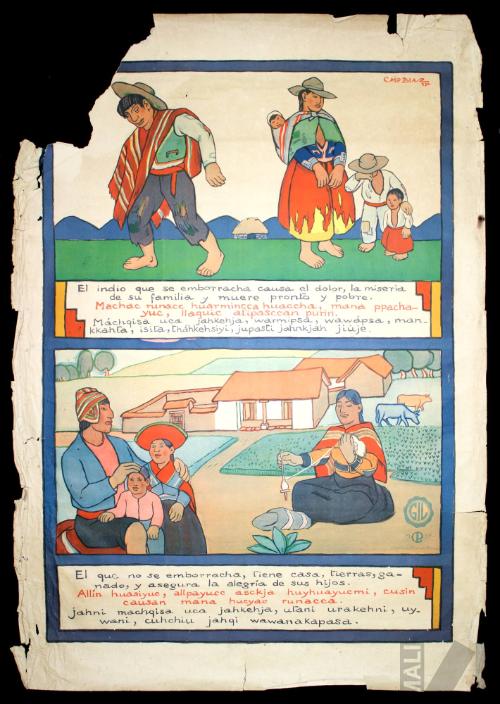 CMP DIAZ
37
El indio que se emborracha causa el dolor, la miseria
de su familia y muere pronto y pobre.
Machac runacc huarmincca huaccha, mana ppacha-
yuc, llaquic allpasccan purin.
Máchqisa uca jahkehja, warmipsa, wawapsa, man-
kkahta, isita, tháhkehsiyi, jupasti jahnkjah jiuje.
GIL
El que no se emborracha, tiene casa, tierras, ga-
nado, y asegura la alegria de sus hijos.
Allin huasiyuc, allpayucc asckja huyhuayucmi, cusin
causan mana hucyac runacca.
jahni machqisa uca jahkehja, utani urakehni, uy-
wani, cuhchiu jahqi wawanakapasa.
MALI